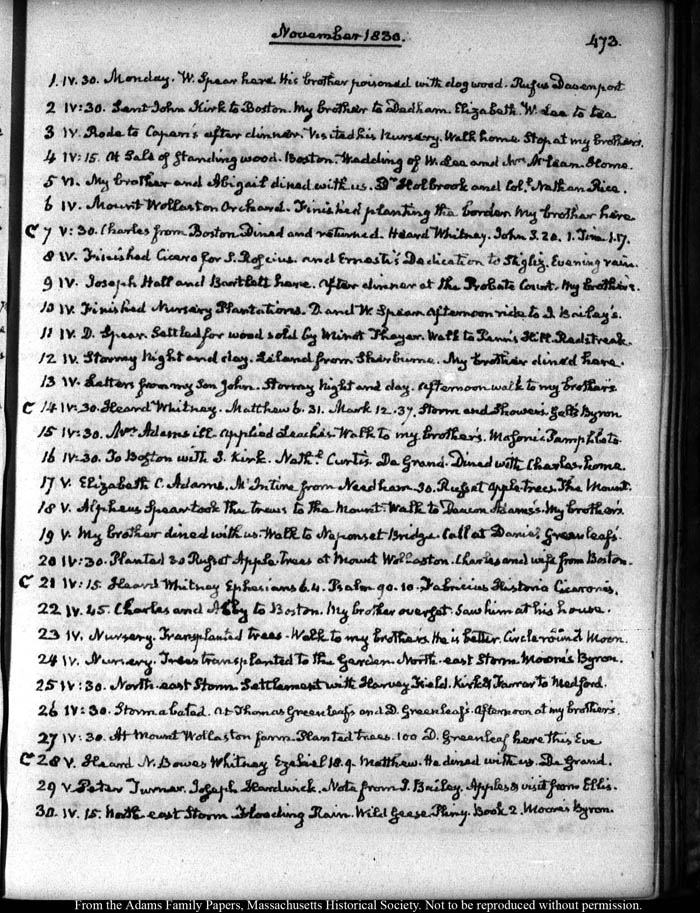 November 1830.
473.
1. IV. 30. Monday. W. Spear here. His brother poisoned with dogwood. Rufus Davenport
2 IV:30. Sent John Kirk to Boston. My brother to Dedham. Elizabeth W. Lee to tea
3 IV. Rode to Capen's after dinner. Visited his Nursery. Walk home Stop at my brothers.
4 IV:15. At Sale of Standing wood. Boston. Wedding of W. Lee and Mrs McLean. Home.
5 VI. My brother and Abigail dined with us. Dr Holbrook and Col. Nathan Rice.
6 IV. Mount Wollaston Orchard. Finished planting the border. My brother here
C 7 V:30. Charles from Boston Dined and returned. Heard Whitney. John 3. 20. 1. Tim. 1. 17.
8 IV. Finished Cicero for S. Roscius. and Ernesti's Dedication to Stiglitz. Evening rain.
9 IV. Joseph Hall and Bartlett here. After dinner at the Probate Court. My brother's.
10 IV. Finished Nursery Plantations. D. and W. Spear. Afternoon ride to J. Bailey's.
11 IV. D. Spear. Settled for wood sold by Minot Thayer. Walk to Penn's Hill. Redstreak.
12 IV. Stormy Night and day. Leland from Sherburne. My brother dined here.
13 IV. Letters from my Son John. Stormy Night and day. Afternoon walk to my brother's
C 14 IV:30. Heard Whitney. Matthew 6. 31. Mark 12. 37. Storm and Showers. Galt's Byron
15 IV:30. Mrs Adams ill. Applied Leaches. Walk to my brother's. Masonic Pamphlets.
16 IV:30. To Boston with J. Kirk. Nathl Curtis. De Grand. Dined with Charles. home.
17 V. Elizabeth C. Adams. McIntire from Needham. 30. Russet apple-trees. The Mount.
18 V. Alpheus Spear took the trees to the Mount. Walk to Deacon Adams's. My brothers
19 V. My brother dined with us. Walk to Neponset Bridge. Call at Daniel Greenleafs.
20 IV:30. Planted 30 Russet Apple-Trees at Mount Wollaston. Charles and wife from Boston.
C 21 IV:15. Heard Whitney Ephesians 6. 4. Psalm 90. 10. Fabricius Historia Ciceronis.
22 IV. 45. Charles and Abby to Boston. My brother overset. Saw him at his house.
23 IV. Nursery. Transplanted trees. Walk to my brothers. He is better. Circle round Moon.
24 IV. Nursery. Trees transplanted to the Garden. North-east Storm. Moore's Byron.
25 IV:30. North-east Storm. Settlement with Harvey Field. Kirk & Farrar to Medford.
26 IV:30. Storm abated. At Thomas Greenleafs and D. Greenleaf's. Afternoon at my brother's.
27 IV:30. At Mount Wollaston farm. Planted trees. 100 D. Greenleaf here this Eve
C 28 V. Heard N. Bowes Whitney Ezekiel 18. 9. Matthew. He dined with us. De Grand.
29 V. Peter Turner. Joseph Hardwick. Note from J. Bailey. Apples & visit from Ellis.
30. IV. 15. North-east Storm Flooding Rain. Wild Geese. Pliny. Book 2. Moore's Byron.
From the Adams Family Papers, Massachusetts Historical Society. Not to be reproduced without permission.